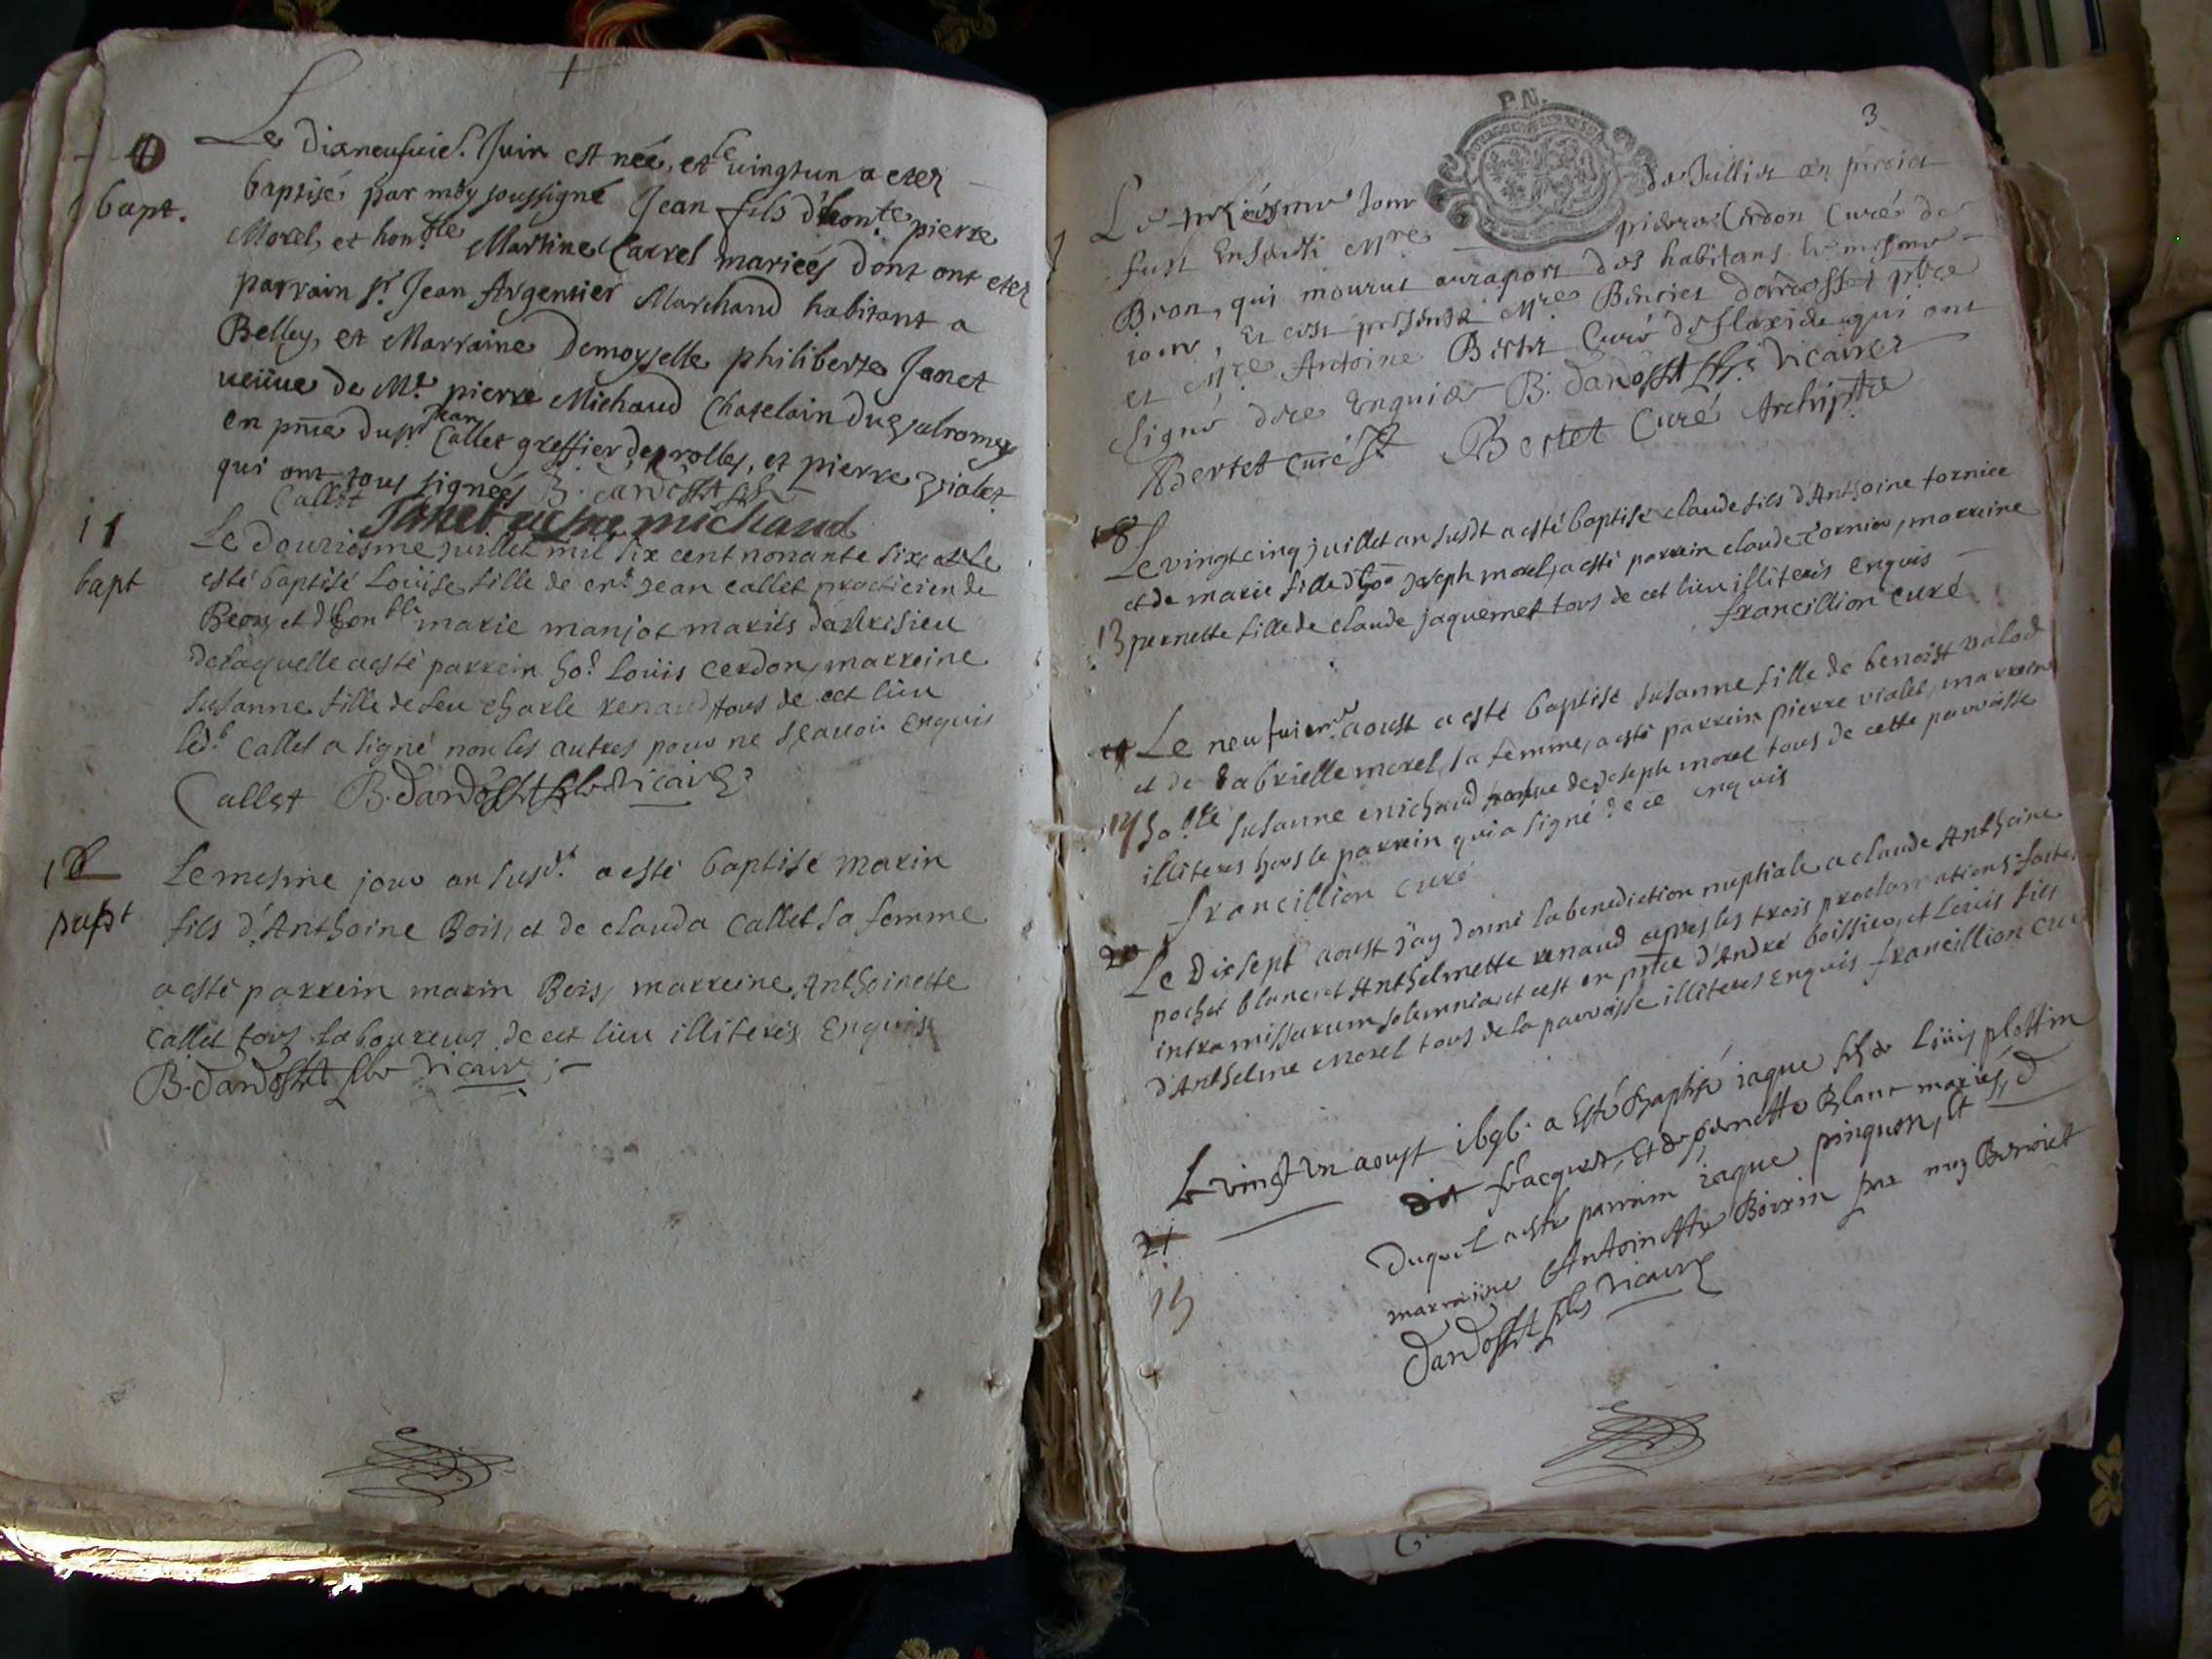 Le dixneufuie. Juin est née, et le uingtun a etez
baptisé par moy soussigné Jean fils d'hon.te pierre
bapt.
Morel, et hon.ble Martine Carrel mariés dont ont etez
parrain sr. Jean Argentier Marchand habitant a
Belley, et Marraine Demoyselle philiberte Janet
ueüue de Me. pierre Michaud Chatelain du Valromey
en pnce du sr Jean Callet greffier des rolles, et pierre Violet
qui ont tous signés B. dardosset
Callet
Janet michaud
11
Le douziesme juillet mil six cent nonante six
bapt
esté baptisé Loüise fille de Jean callet practicien de
Beon et d'hon.ble marie manjot mariés
delaquelle a esté parrein ho. Louis cerdon, marreine
susanne fille de feu charle renaud tous de cet lieu
led.t Callet a signé non les autres pour ne sçauoir Enquis
Callet B. dardosset vicaire
Le mesme jour an susd.t a esté baptisé marin
fils d'Anthoine Bois, et de clauda callet sa femme
a esté parrein marin Bois, marreine Anthoinette
callet tous laboureurs de cet lieu illiterés Enquis
B. dardosset vicaire
P.N.
3
Jour de Juillet
fust Enseueli Mre pierre Cerdon Curé de
Beon, qui mourut au raport des habitans le mesme
jour, Et cest presenté Mre Benoiet dardosset ptre
et Mre Antoine Bertet Curé de flaxieu qui ont
signé de ce Enquis B. dardosset vicaire
Bertet curé Bertet Curé Archiptre
18
Le vingt cinq juillet an susdt a esté baptisé claude fils d'Anthoine fornier
et de marie fille d'ho joseph morel, a esté parrein claude fornier, marreine
13 pernette fille de claude jaquemet tous de cet lieu illiterés enquis
francillion curé
Le neufuiem.e aoust a esté baptisé susanne fille de benoist valod
et de Gabrielle morel, sa femme, a esté parrein pierre violet, marreine
14 ho.ble susanne michaud femme de joseph morel tous de cette parroisse
illiteres hors le parrein qui a signé de ce enquis
francillion curé
20
Le Dixsept aoust j'ay donné la benediction nuptiale a claude Anthoine
pochet blanc et Anthelmette renaud apres les trois proclamations faites
intra missarum solemnia, et cest en pnce d'André boissieu, et Louis fils
d'Anthelme Morel tous de la parroisse illiteres enquis francillion cu
Le vingt un aoust 1696 a Esté Baptisé iaque fils de Loüis plottin
dit fracquet, Et de pernette Blanc mariés, d
21
Duquel a este parrain iaque pinguon, Et
marraine Antoinette Boirin par moy Benoiet
15
Dardosset vicaire